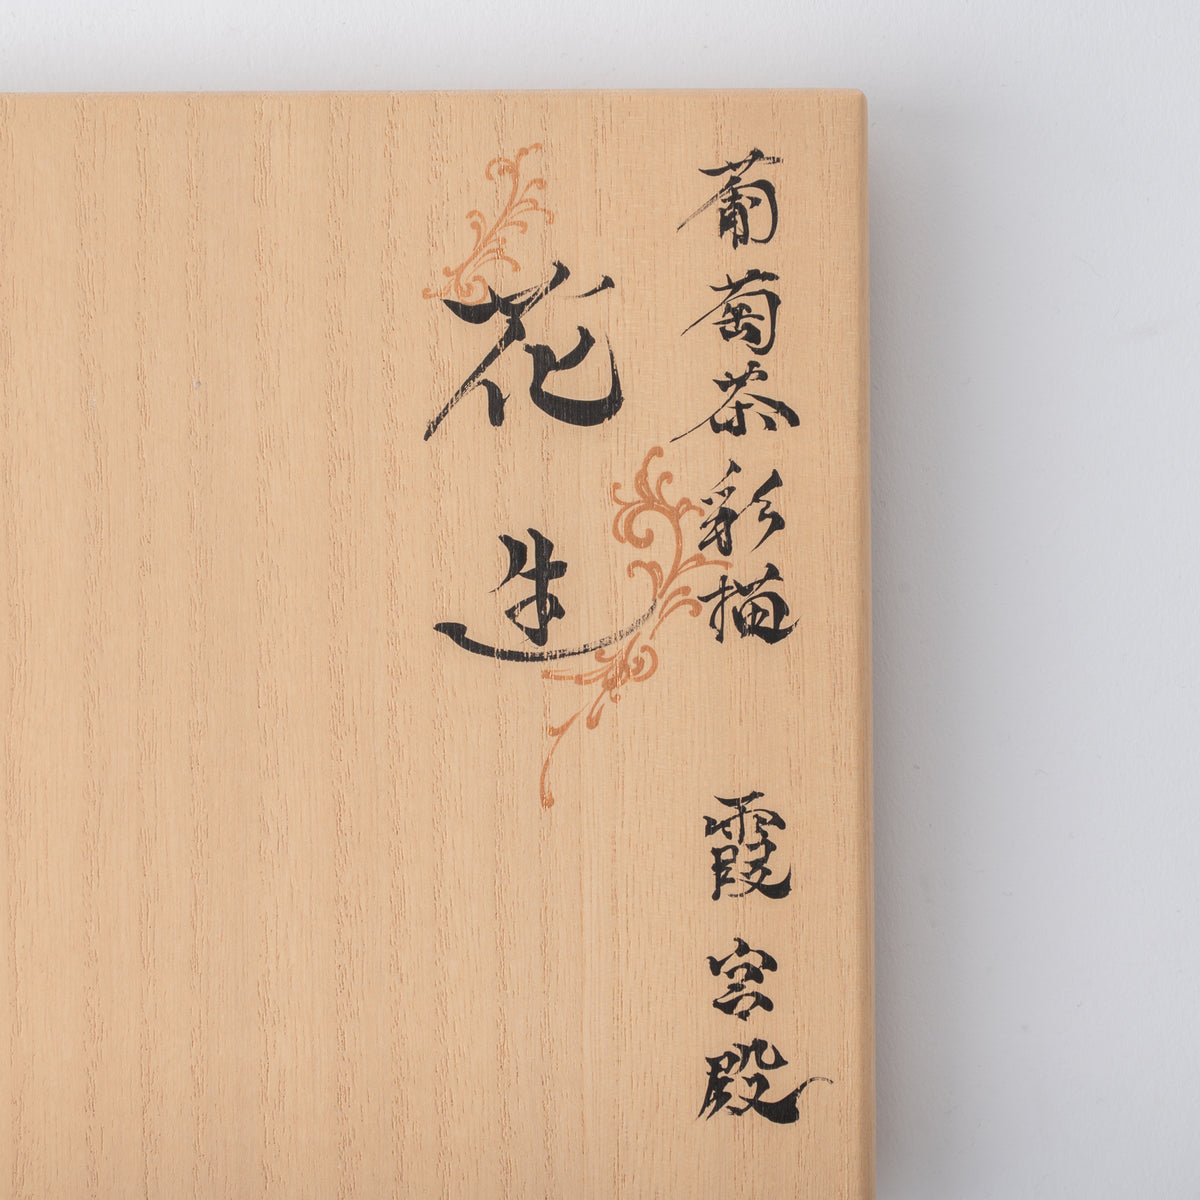 葡萄茶彩描 霞宮殿
花造